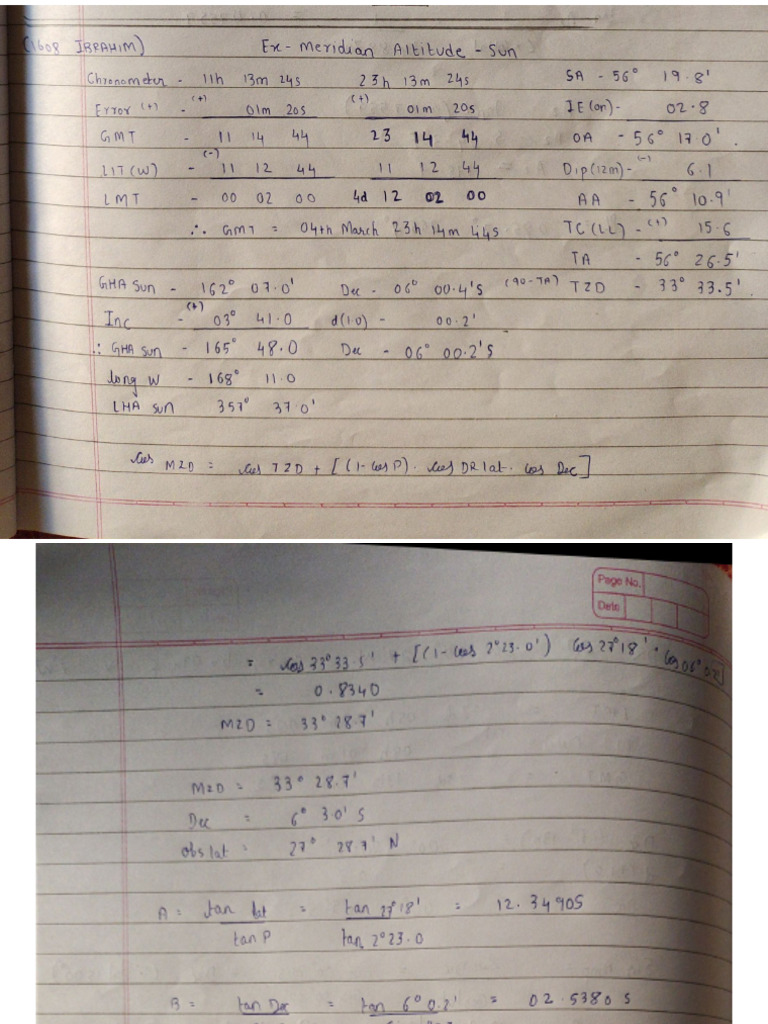 (1608 IBRAHIM) Ex-Meridian Altitude - Sun
Chronometer - 11h 13m 24s 23h 13m 24s SA - 56° 19.8'
Error (+) - (+) 01m 20s (+) 01m 20s IE (on) - 02.8
GMT - 11 14 44 23 14 44 OA - 56° 17.0'
LIT (W) - (-) 11 12 44 11 12 44 Dip (12m) - (-) 6.1
LMT - 00 02 00 4d 12 02 00 AA - 56° 10.9'
∴ GMT = 04th March 23h 14m 44s TC (LL) - (+) 15.6
TA - 56° 26.5'
GHA Sun - 162° 07.0' Dec - 06° 00.4'S (90-TA) TZD - 33° 33.5'
Inc - (+) 03° 41.0 d(1.0) - 00.2'
∴ GHA sun - 165° 48.0 Dec - 06° 00.2'S
long W - 168° 11.0
LHA sun 357° 37.0'
Cos MZD = Cos TZD + [(1-Cos P). Cos DR lat. Cos Dec]
Page No.
Date
= Cos 33° 33.5' + [(1-Cos 2° 23.0') Cos 27° 18' . Cos 06° 0.2']
= 0.8340
MZD = 33° 28.7'
MZD = 33° 28.7'
Dec = 6° 30' S
obs lat = 27° 28.7' N
A = tan lat = tan 27° 18' = 12.3490S
tan P tan 2° 23.0
B = tan Dec = tan 6° 0.2' = 02.5380 S